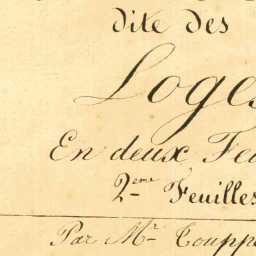 dite des
Loges
En deux Feu
2.eme Feuilles
Par Mr. Coupp